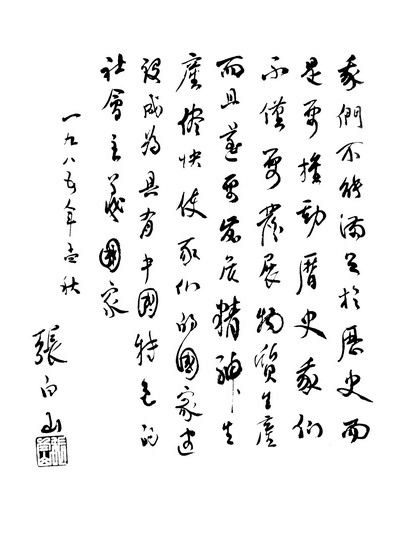 我們不能滿足於歷史而
是要推動曆史我们
不僅要發展物質生產
而且還要發展精神生
產儘快使我们的國家建
設成為具有中國特色的
社會主義國家
一九八五年孟秋
張白山